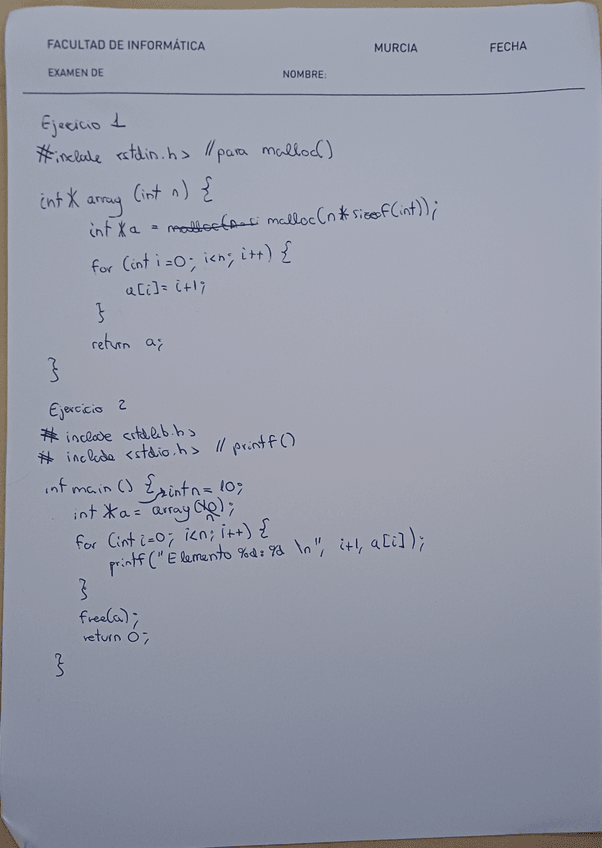 FACULTAD DE INFORMÁTICA MURCIA FECHA
EXAMEN DE NOMBRE:
Ejercicio 1
#include <stdin.h> //para malloc()
int* array (int n) {
int *a = malloc(n*sizeof(int));
for (int i=0; i<n; i++) {
a[i]= i+1;
}
return a;
}
Ejercicio 2
# include <stdlib.h>
# include <stdio.h> // printf()
int main () { int n = 10;
int *a = array(n);
for (int i=0; i<n; i++) {
printf("Elemento %d: %d \n", i+1, a[i]);
}
free(a);
return 0;
}